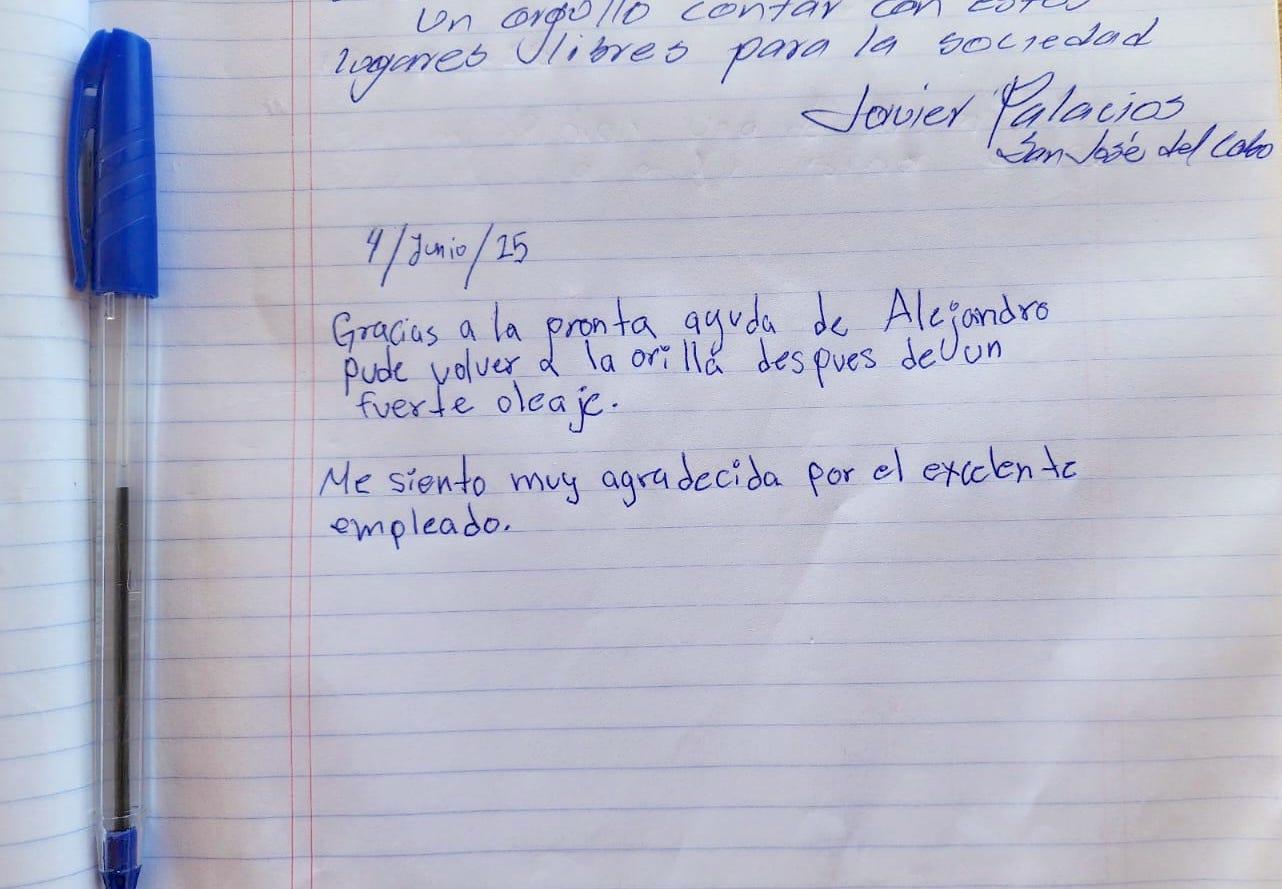 Un orgullo contar con estos
lugares libres para la sociedad
Javier Palacios
San José del Cabo
4/Junio/25
Gracias a la pronta ayuda de Alejandro
pude volver a la orilla despues de un
fuerte oleaje.
Me siento muy agradecida por el excelente
empleado.